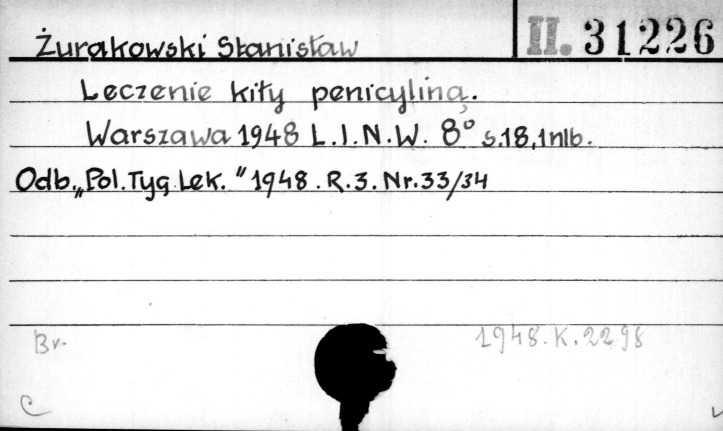 Żurakowski Stanisław II. 31226
Leczenie kiły penicyliną.
Warszawa 1948 L.I.N.W. 8° s.18,1nlb.
Odb. „Pol.Tyg.Lek." 1948. R.3. Nr.33/34
Br. 1948.K.2298
C